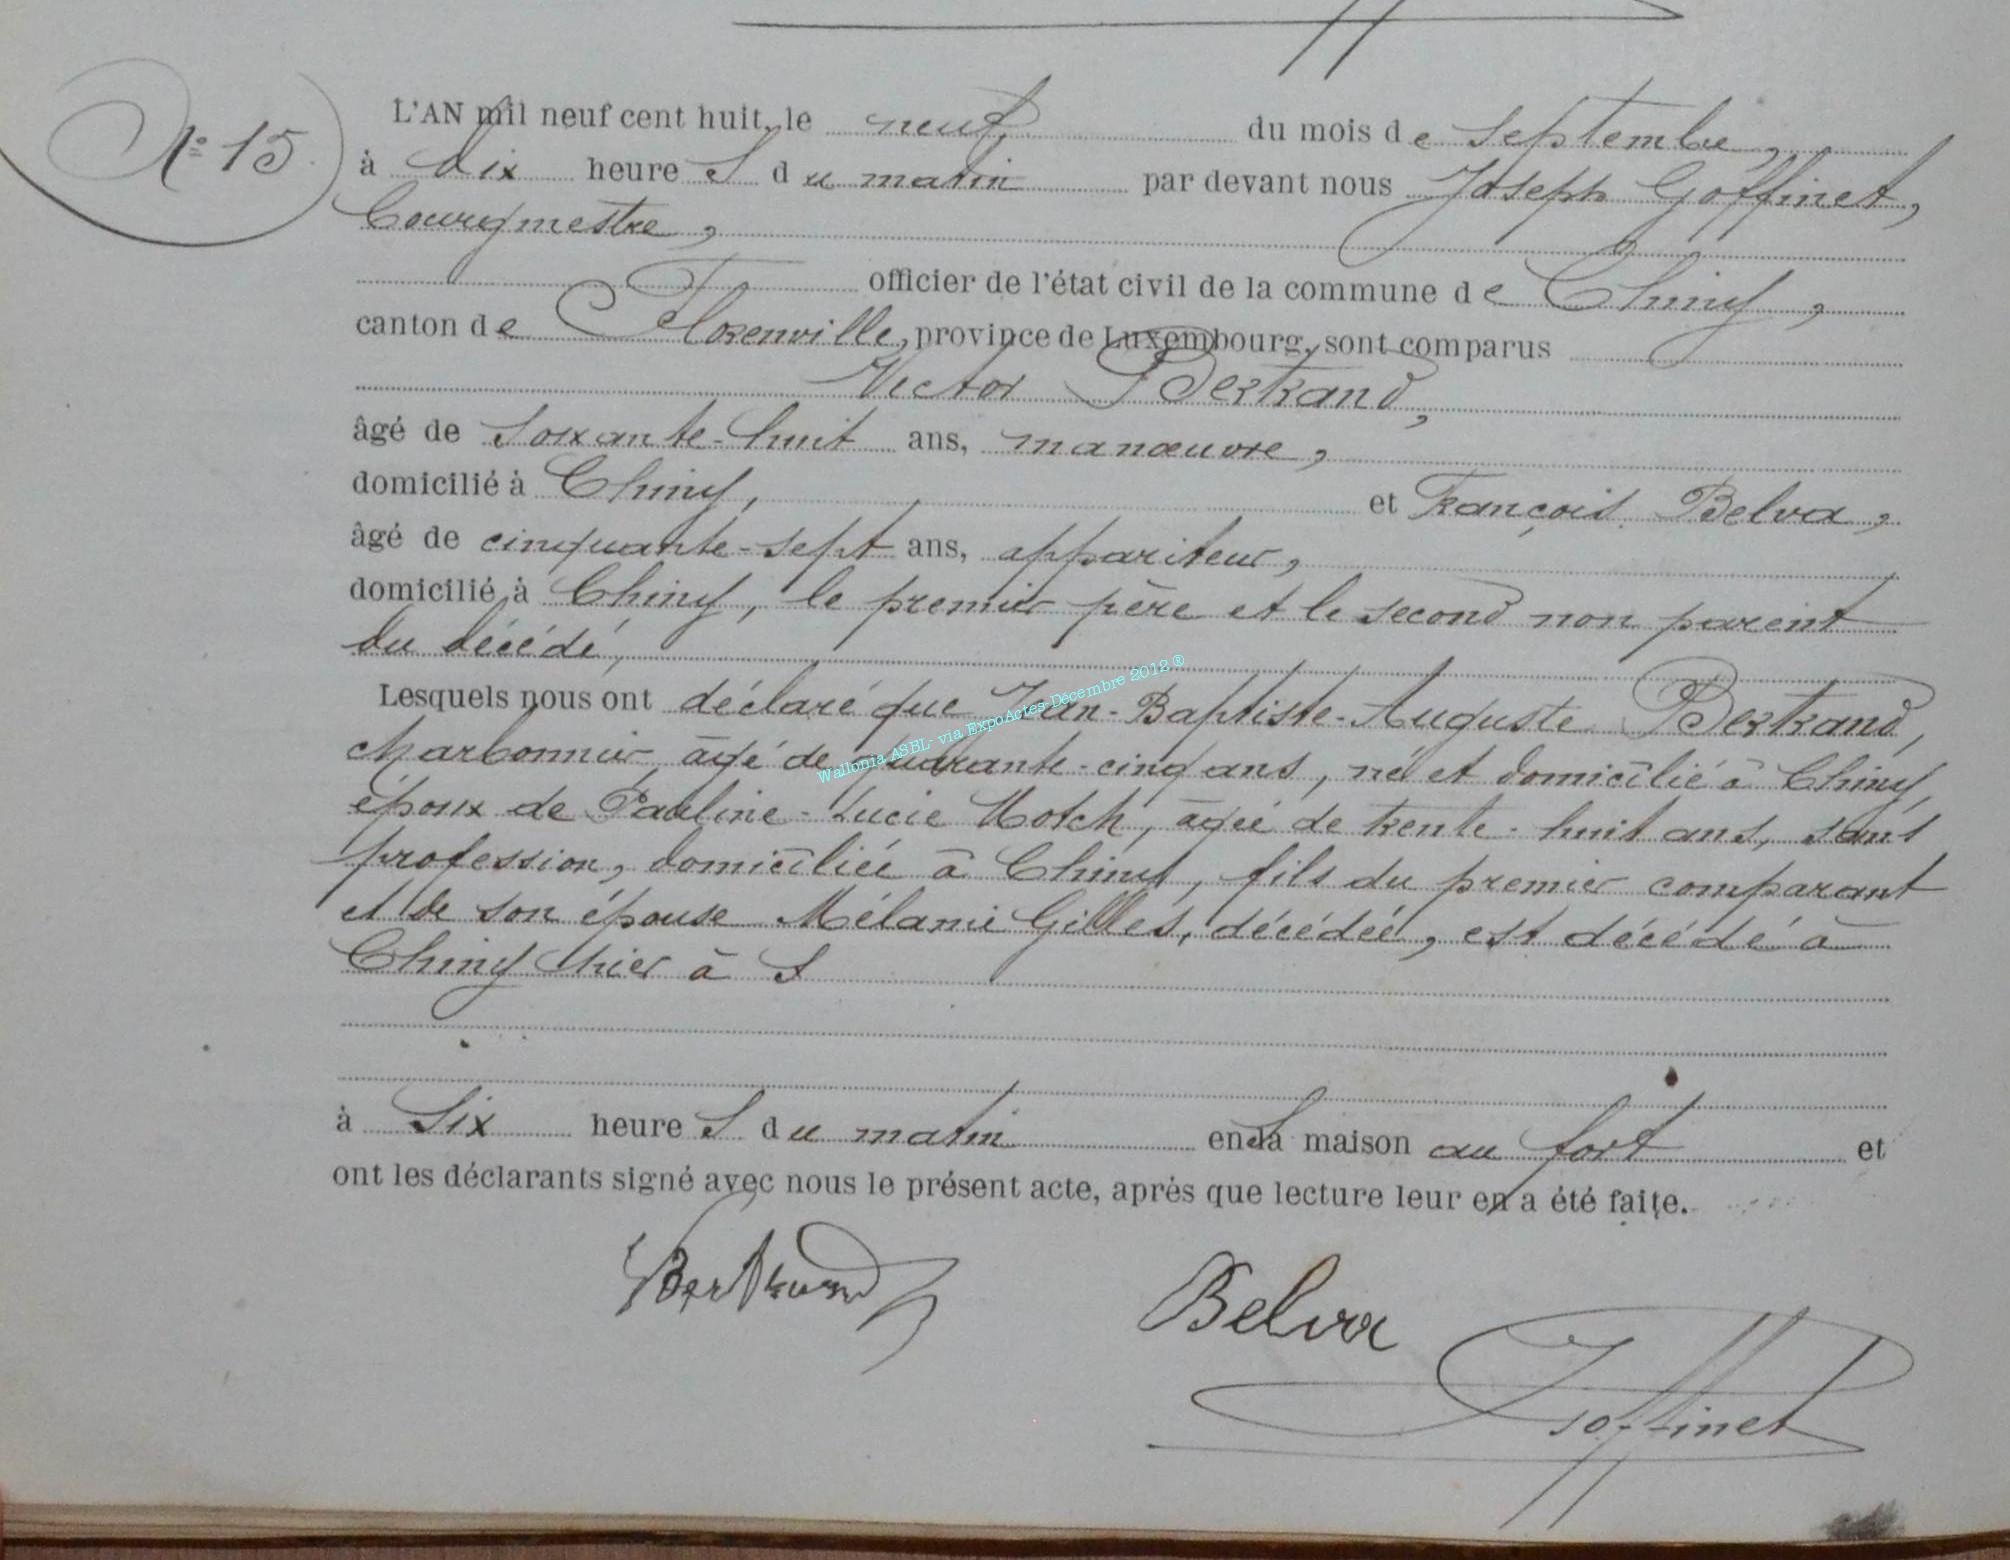 N° 15
L'AN mil neuf cent huit, le neuf, du mois de septembre,
à dix heureS du matin par devant nous Joseph Goffinet,
Bourgmestre,
officier de l'état civil de la commune de Chiny,
canton de Florenville, province de Luxembourg, sont comparus
Victor Bertrand,
âgé de soixante-huit ans, manœuvre,
domicilié à Chiny, et François Belva,
âgé de cinquante-sept ans, appariteur,
domicilié à Chiny, le premier père et le second non parent
du décédé,
Lesquels nous ont déclaré que Jean-Baptiste-Auguste Bertrand,
charbonnier, âgé de quarante-cinq ans, né et domicilié à Chiny,
époux de Pauline-Lucie Hotch, âgée de trente-huit ans, sans
profession, domiciliée à Chiny, fils du premier comparant
et de son épouse Mélanie Gilles, décédée, est décédé à
Chiny hier à S
à Six heureS du matin en sa maison au fort et
ont les déclarants signé avec nous le présent acte, après que lecture leur en a été faite.
Bertrand
Belva
Goffinet
Wallonia ASBL- via ExpoActes-Décembre 2012 ®